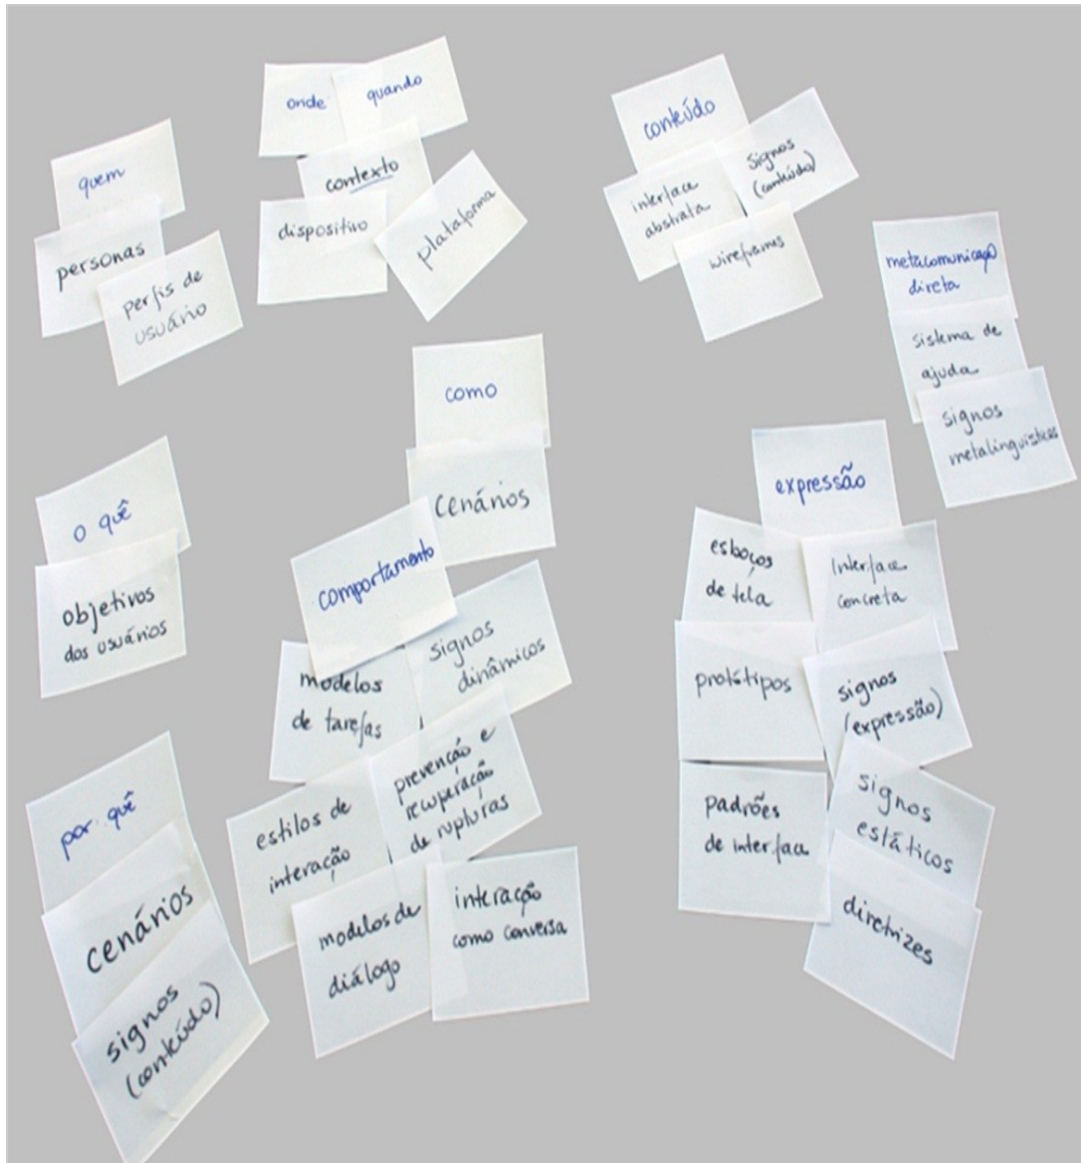 quem
personas
perfis de
usuário
onde
quando
contexto
dispositivo
plataforma
conteúdo
interface
abstrata
signos
(conteúdo)
wireframes
metacomunicação
direta
sistema de
ajuda
signos
metalinguísticos
o quê
objetivos
dos usuários
por quê
cenários
signos
(conteúdo)
como
cenários
comportamento
signos
dinâmicos
modelos
de tarefas
prevenção e
recuperação
de rupturas
estilos de
interação
modelos de
diálogo
interação
como conversa
expressão
esboços
de tela
interface
concreta
protótipos
signos
(expressão)
padrões
de interface
signos
estáticos
diretrizes